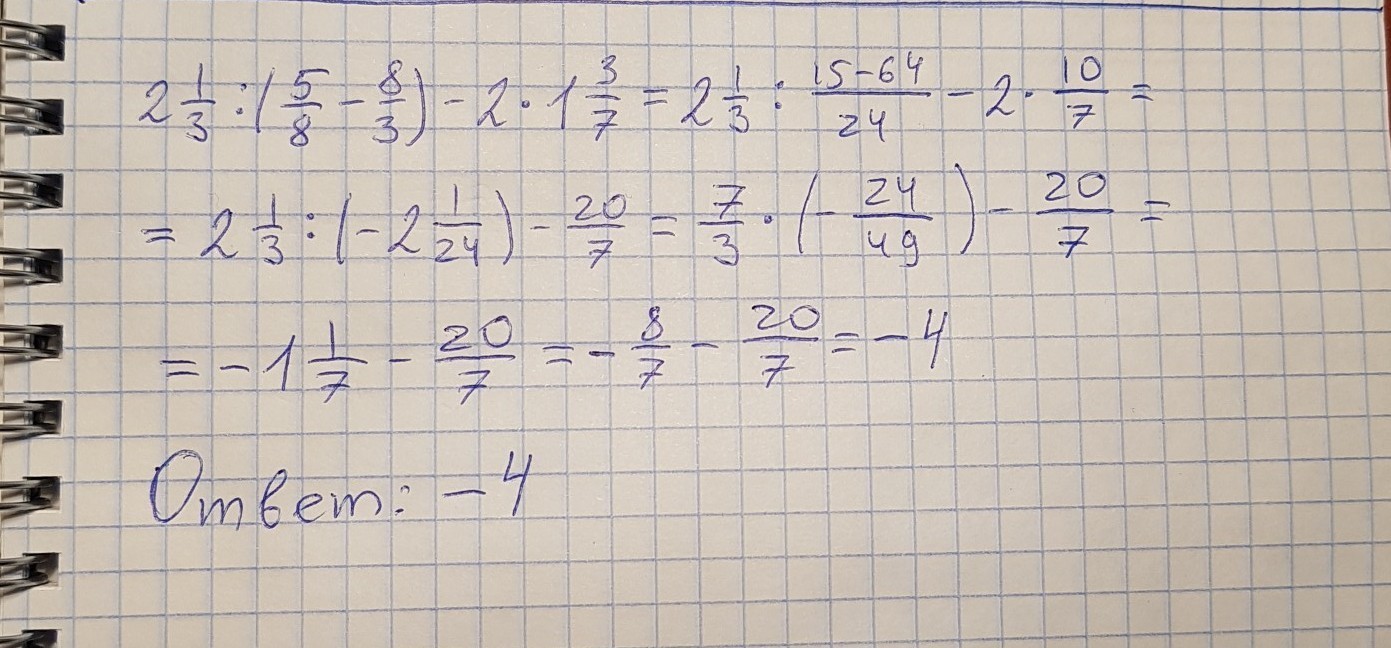 2 1/3 : (5/8 - 8/3) - 2 · 1 3/7 = 2 1/3 : (15-64)/24 - 2 · 10/7 =
= 2 1/3 : (-2 1/24) - 20/7 = 7/3 · (- 24/49) - 20/7 =
= -1 1/7 - 20/7 = - 8/7 - 20/7 = -4
Ответ: -4